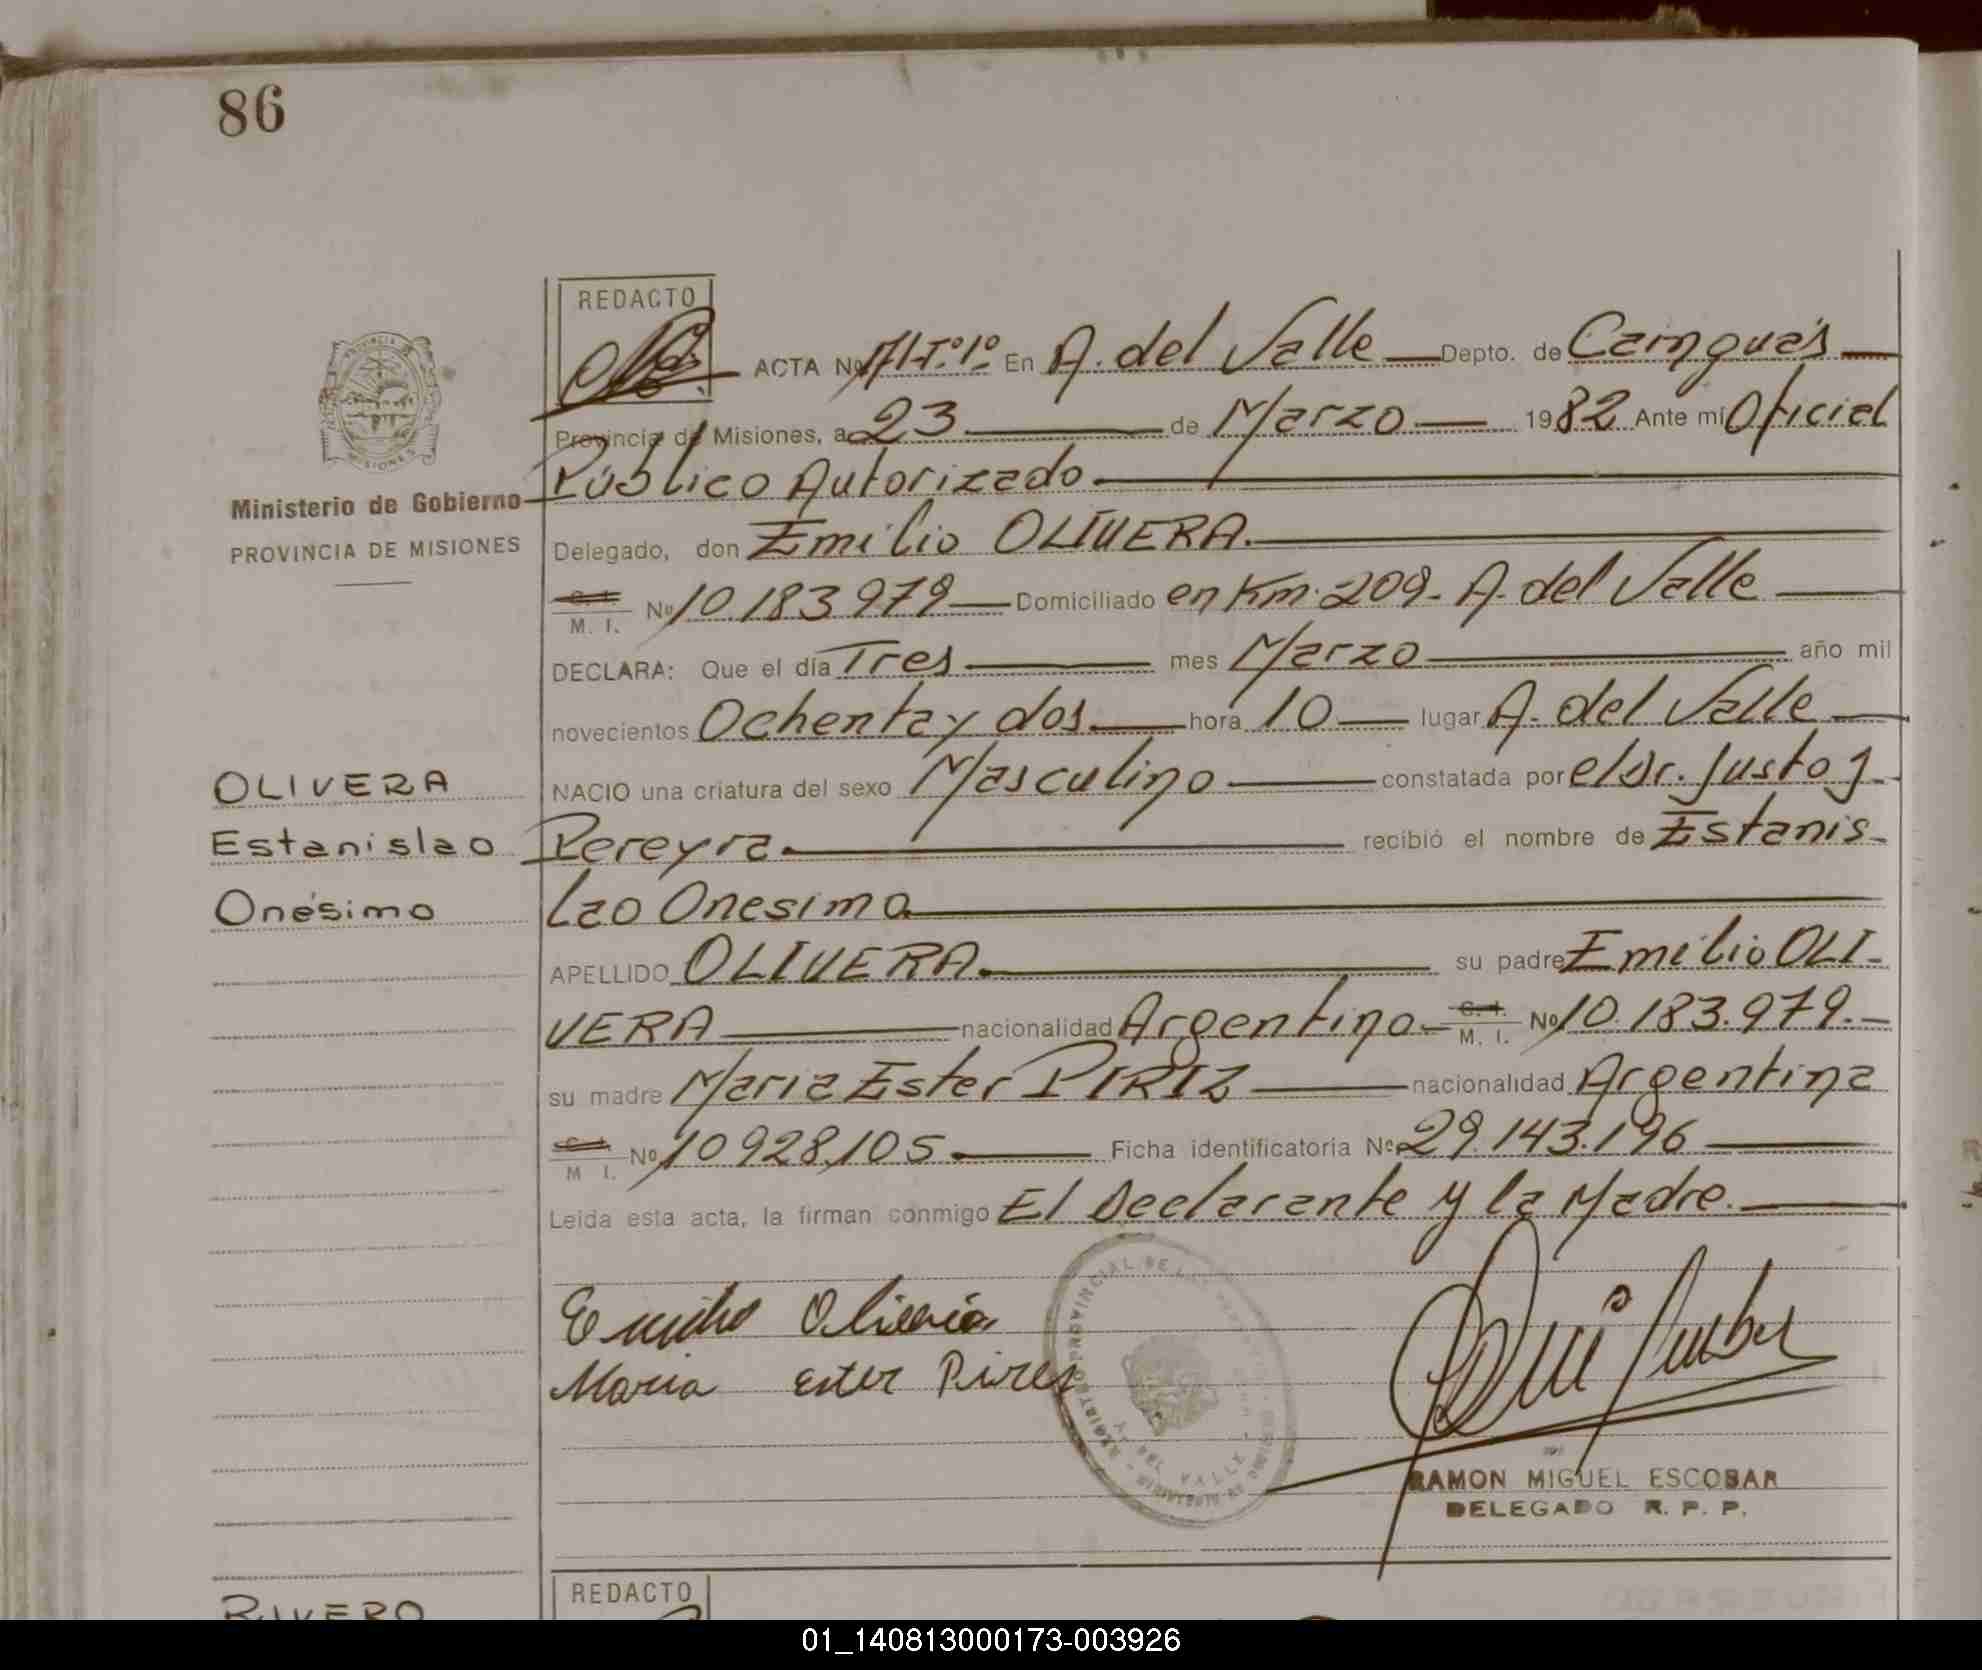 86
REDACTO
ACTA Nº 171-Tº1º. En A. del Valle Depto. de Cainguás
Provincia de Misiones, a 23 de Marzo 1982 Ante mí Oficial
Público Autorizado.
Ministerio de Gobierno
PROVINCIA DE MISIONES
Delegado, don Emilio OLIVERA.
C. I.
M. I. Nº 10.183.979 Domiciliado en Km. 209- A. del Valle
DECLARA: Que el día Tres mes Marzo año mil
novecientos Ochenta y dos. hora 10 lugar A. del Valle
NACIO una criatura del sexo Masculino constatada por el Dr. Justo J.
Pereyra. recibió el nombre de Estanis-
lao Onesimo
OLIVERA
Estanislao
Onésimo
APELLIDO OLIVERA. su padre Emilio OLI-
VERA nacionalidad Argentino. C. I.
M. I. Nº 10.183.979.
su madre Maria Ester PIRIZ nacionalidad Argentina
C. I.
M. I. Nº 10928.105. Ficha identificatoria Nº 29.143.196
Leída esta acta, la firman conmigo El Declarante y la Madre.
Emilio Olivera
Maria ester Pires
REGISTRO PROVINCIAL DE LAS
DEL VALLE
RAMON MIGUEL ESCOBAR
DELEGADO R. P. P.
REDACTO
RIVERO
01_140813000173-003926